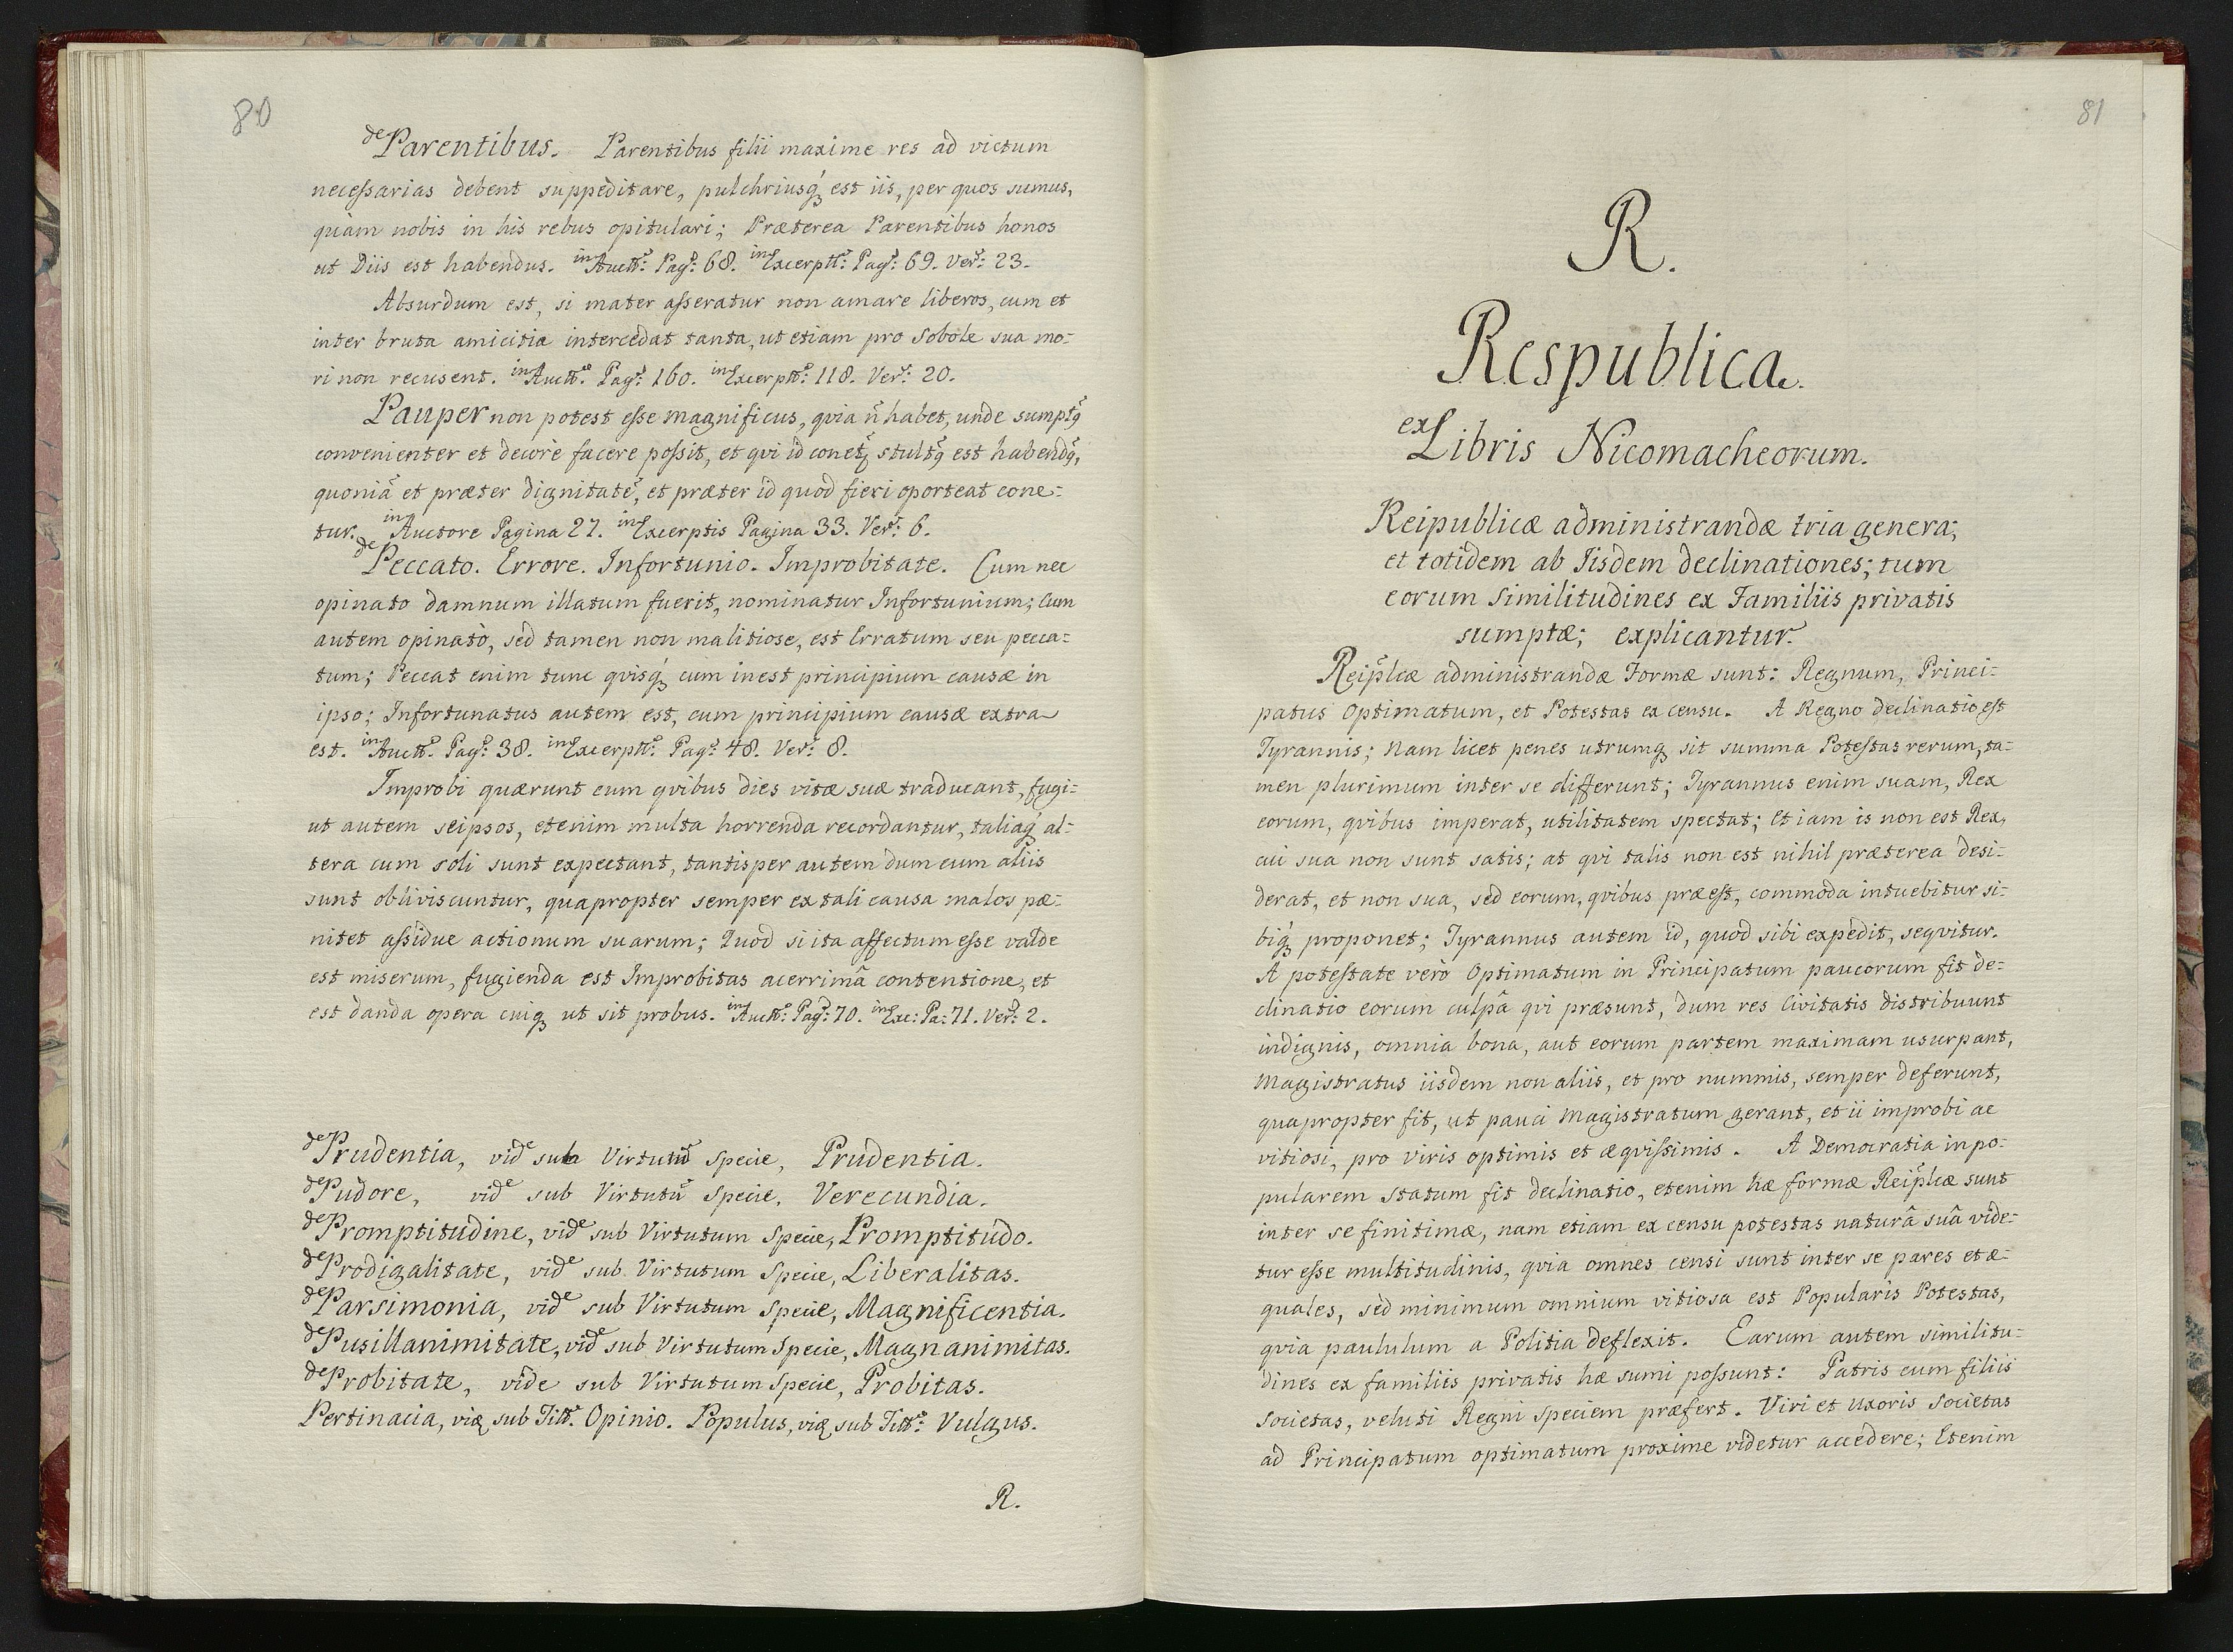 80
de Parentibus. Parentibus filii maxime res ad victum
necessarias debent suppeditare, pulchriusq́ꝫ est iis, per quos sumus,
quàm nobis in his rebus opitulari; Præterea Parentibus honos
ut Diis est habendus. in Auctr̃: Pagr̃: 68. in Excerptr̃: Pagr̃: 69. Verr̃: 23.
Absurdum est, si mater asseratur non amare liberos, cum et
inter bruta amicitia intercedat tanta, ut etiam pro sobole sua mo-
ri non recusent. in Auctr̃: Pagr̃: 160. in Excerptr̃: 118. Verr̃: 20.
Pauper non potest esse magnificus, qvia ñ habet, unde sumptꝰ
convenienter et decorè facere possit, et qvi id conetꝫ stultꝰ est habendꝰ,
quoniã et præter dignitatẽ, et præter id quod fieri oporteat cone-
tur. in Auctore Pagina 27. in Excerptis Pagina 33. Verr̃: 6.
de Peccato. Errore. Infortunio. Improbitate. Cum nec
opinato damnum illatum fuerit, nominatur Infortunium; Cum
autem opinatò, sed tamen non malitiose, est Erratum seu pecca-
tum; Peccat enim tunc qvisq́ꝫ cum inest principium causæ in
ipso; Infortunatus autem est, cum principium causæ extra
est. in Auctr̃: Pagr̃: 38. in Excerptr̃: Pagr̃: 48. Verr̃: 8.
Improbi quærunt cum qvibus dies vitæ suæ traducant, fugi-
ut autem seipsos, etenim multa horrenda recordantur, taliaq́ꝫ al-
tera cum soli sunt expectant, tantisper autem dum cum aliis
sunt obliviscuntur, quapropter semper ex tali causa malos pæ-
nitet assidue actionum suarum; Quod si ita affectum esse valde
est miserum, fugienda est Improbitas acerrimâ contentione, et
est danda opera cuiqꝫ ut sit probus. in Auctr̃: Pagr̃: 70. in Exc: Pa: 71. Verr̃: 2.
de Prudentia, vide sub Virtutũ Specie, Prudentia.
de Pudore, vide sub Virtutũ Specie, Verecundia.
de Promptitudine, vide sub Virtutum Specie, Promptitudo.
de Prodigalitate, vide sub Virtutum Specie, Liberalitas.
de Parsimonia, vide sub Virtutum Specie, Magnificentia.
de Pusillanimitate, vide sub Virtutum Specie, Magnanimitas.
de Probitate, vide sub Virtutum Specie, Probitas.
Pertinacia, viꝫ sub Titr̃: Opinio. Populus, viꝫ sub Titr̃: Vulgus.
R.
81
R.
Respublica.
ex Libris Nicomacheorum.
Reipublicæ administrandæ tria genera;
et totidem ab Iisdem declinationes; tum
eorum Similitudines ex Familiis privatis
sumptæ; explicantur.
Reip̃licæ administrandæ Formæ sunt: Regnum, Princi-
patus Optimatum, et Potestas ex censu. A Regno declinatio est
Tyrannis; Nam licet penes utrumqꝫ sit summa Potestas rerum, ta-
men plurimum inter se differunt; Tyrannus enim suam, Rex
eorum, qvibus imperat, utilitatem spectat; Etiam is non est Rex,
cui sua non sunt satis; at qvi talis non est nihil præterea desi-
derat, et non sua, sed eorum, qvibus præest, commoda intuebitur si-
biq́ꝫ proponet; Tyrannus autem id, quod sibi expedit, seqvitur.
A potestate verò Optimatum in Principatum paucorum fit de-
clinatio eorum culpâ qvi præsunt, dum res Civitatis distribuunt
indignis, omnia bona, aut eorum partem maximam usurpant,
Magistratus iisdem non aliis, et pro nummis, semper deferunt,
quapropter fit, ut pauci Magistratum gerant, et ii improbi ac
vitiosi, pro viris optimis et æqvissimis. A Democratia in po-
pularem statum fit declinatio, etenim hæ formæ Reip̃licæ sunt
inter se finitimæ, nam etiam ex censu potestas naturâ suâ vide-
tur esse multitudinis, qvia omnes censi sunt inter se pares et æ-
quales, sed minimum omnium vitiosa est Popularis Potestas,
qvia paululum a Politia deflexit. Earum autem similitu-
dines ex familiis privatis hæ sumi possunt: Patris cum filiis
Societas, veluti Regni speciem præfert. Viri et Uxoris Societas
ad Principatum optimatum proxime videtur accedere; Etenim